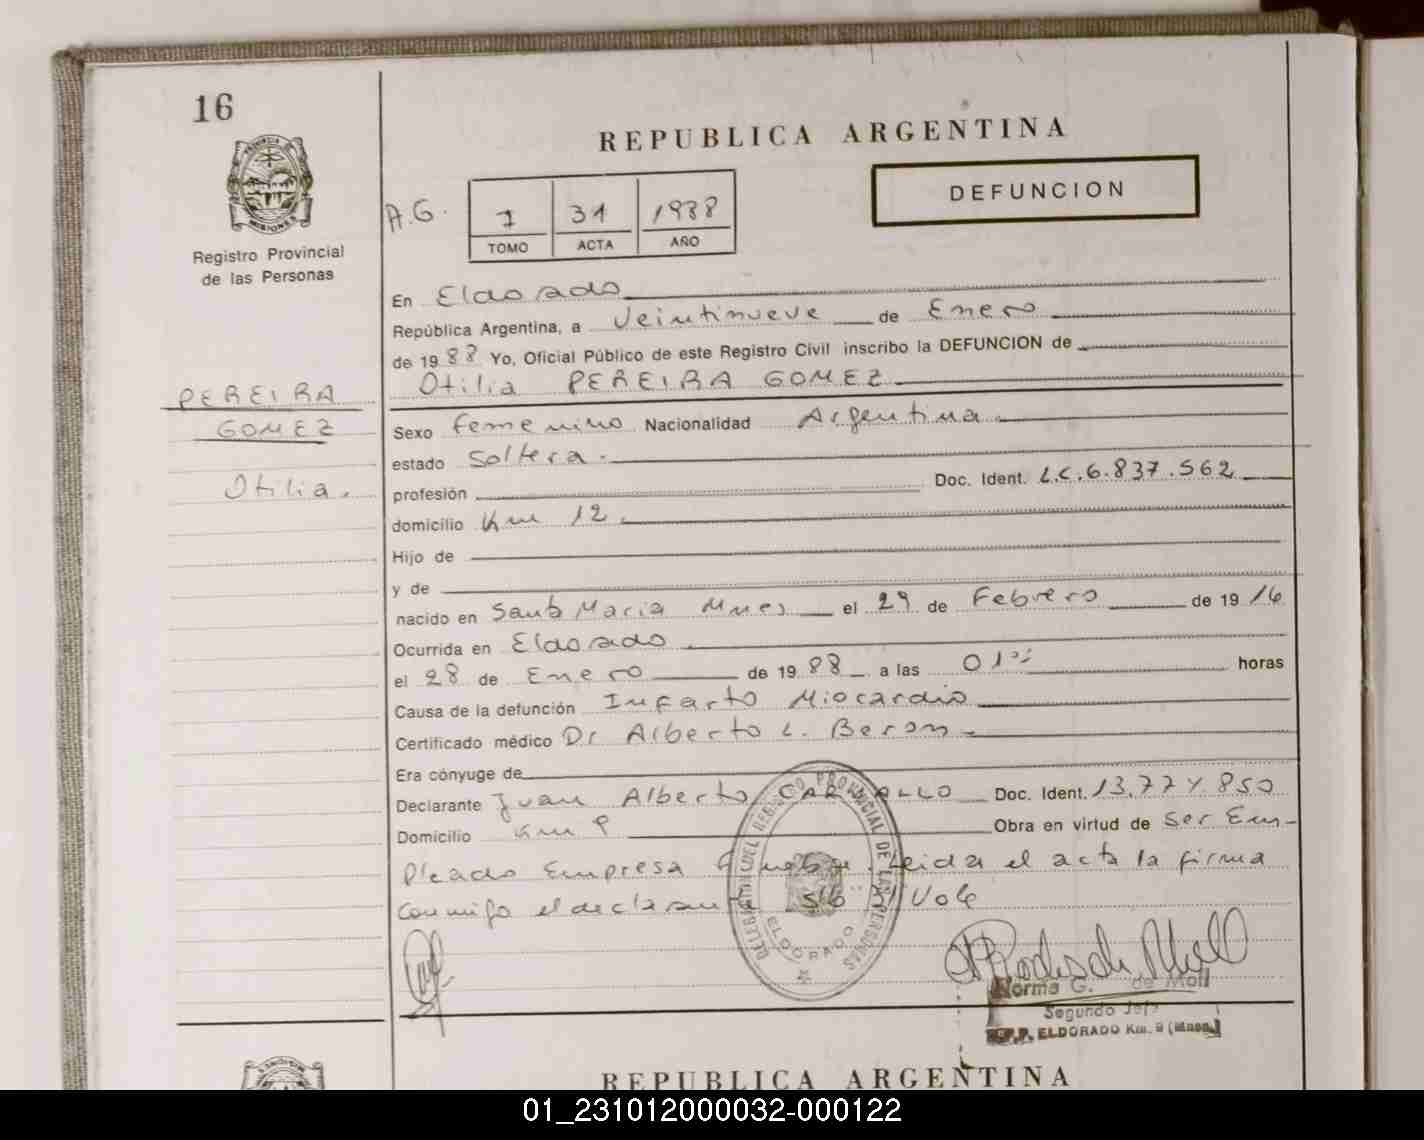 16
REPUBLICA ARGENTINA
DEFUNCION
Registro Provincial
de las Personas
A.G. 1 31 1988
TOMO ACTA AÑO
En Eldorado
República Argentina, a Veintinueve de Enero
de 1988 Yo, Oficial Público de este Registro Civil inscribo la DEFUNCION de
Otilia PEREIRA GOMEZ
PEREIRA
GOMEZ
Otilia.
Sexo femenino Nacionalidad Argentina
estado Soltera.
profesión Doc. Ident. L.C. 6.837.562
domicilio Km 12.
Hijo de
y de
nacido en Santa Maria Mnes el 29 de Febrero de 1916
Ocurrida en Eldorado
el 28 de Enero de 1988 a las 01 horas
Causa de la defunción Infarto Miocardio
Certificado médico Dr Alberto L. Beron
Era cónyuge de
Declarante Juan Alberto Doc. Ident. 13.774.850
Domicilio Km 9 Obra en virtud de Ser Em-
pleado Empresa Leida el acta la firma
conmigo el declarante Vole
DELEGACION DEL REGISTRO PROVINCIAL DE LAS PERSONAS
ELDORADO
Norma G. de Moll
Segundo Jefe
R.P.P. ELDORADO Km. 9 (Mnes.)
REPUBLICA ARGENTINA
01_231012000032-000122